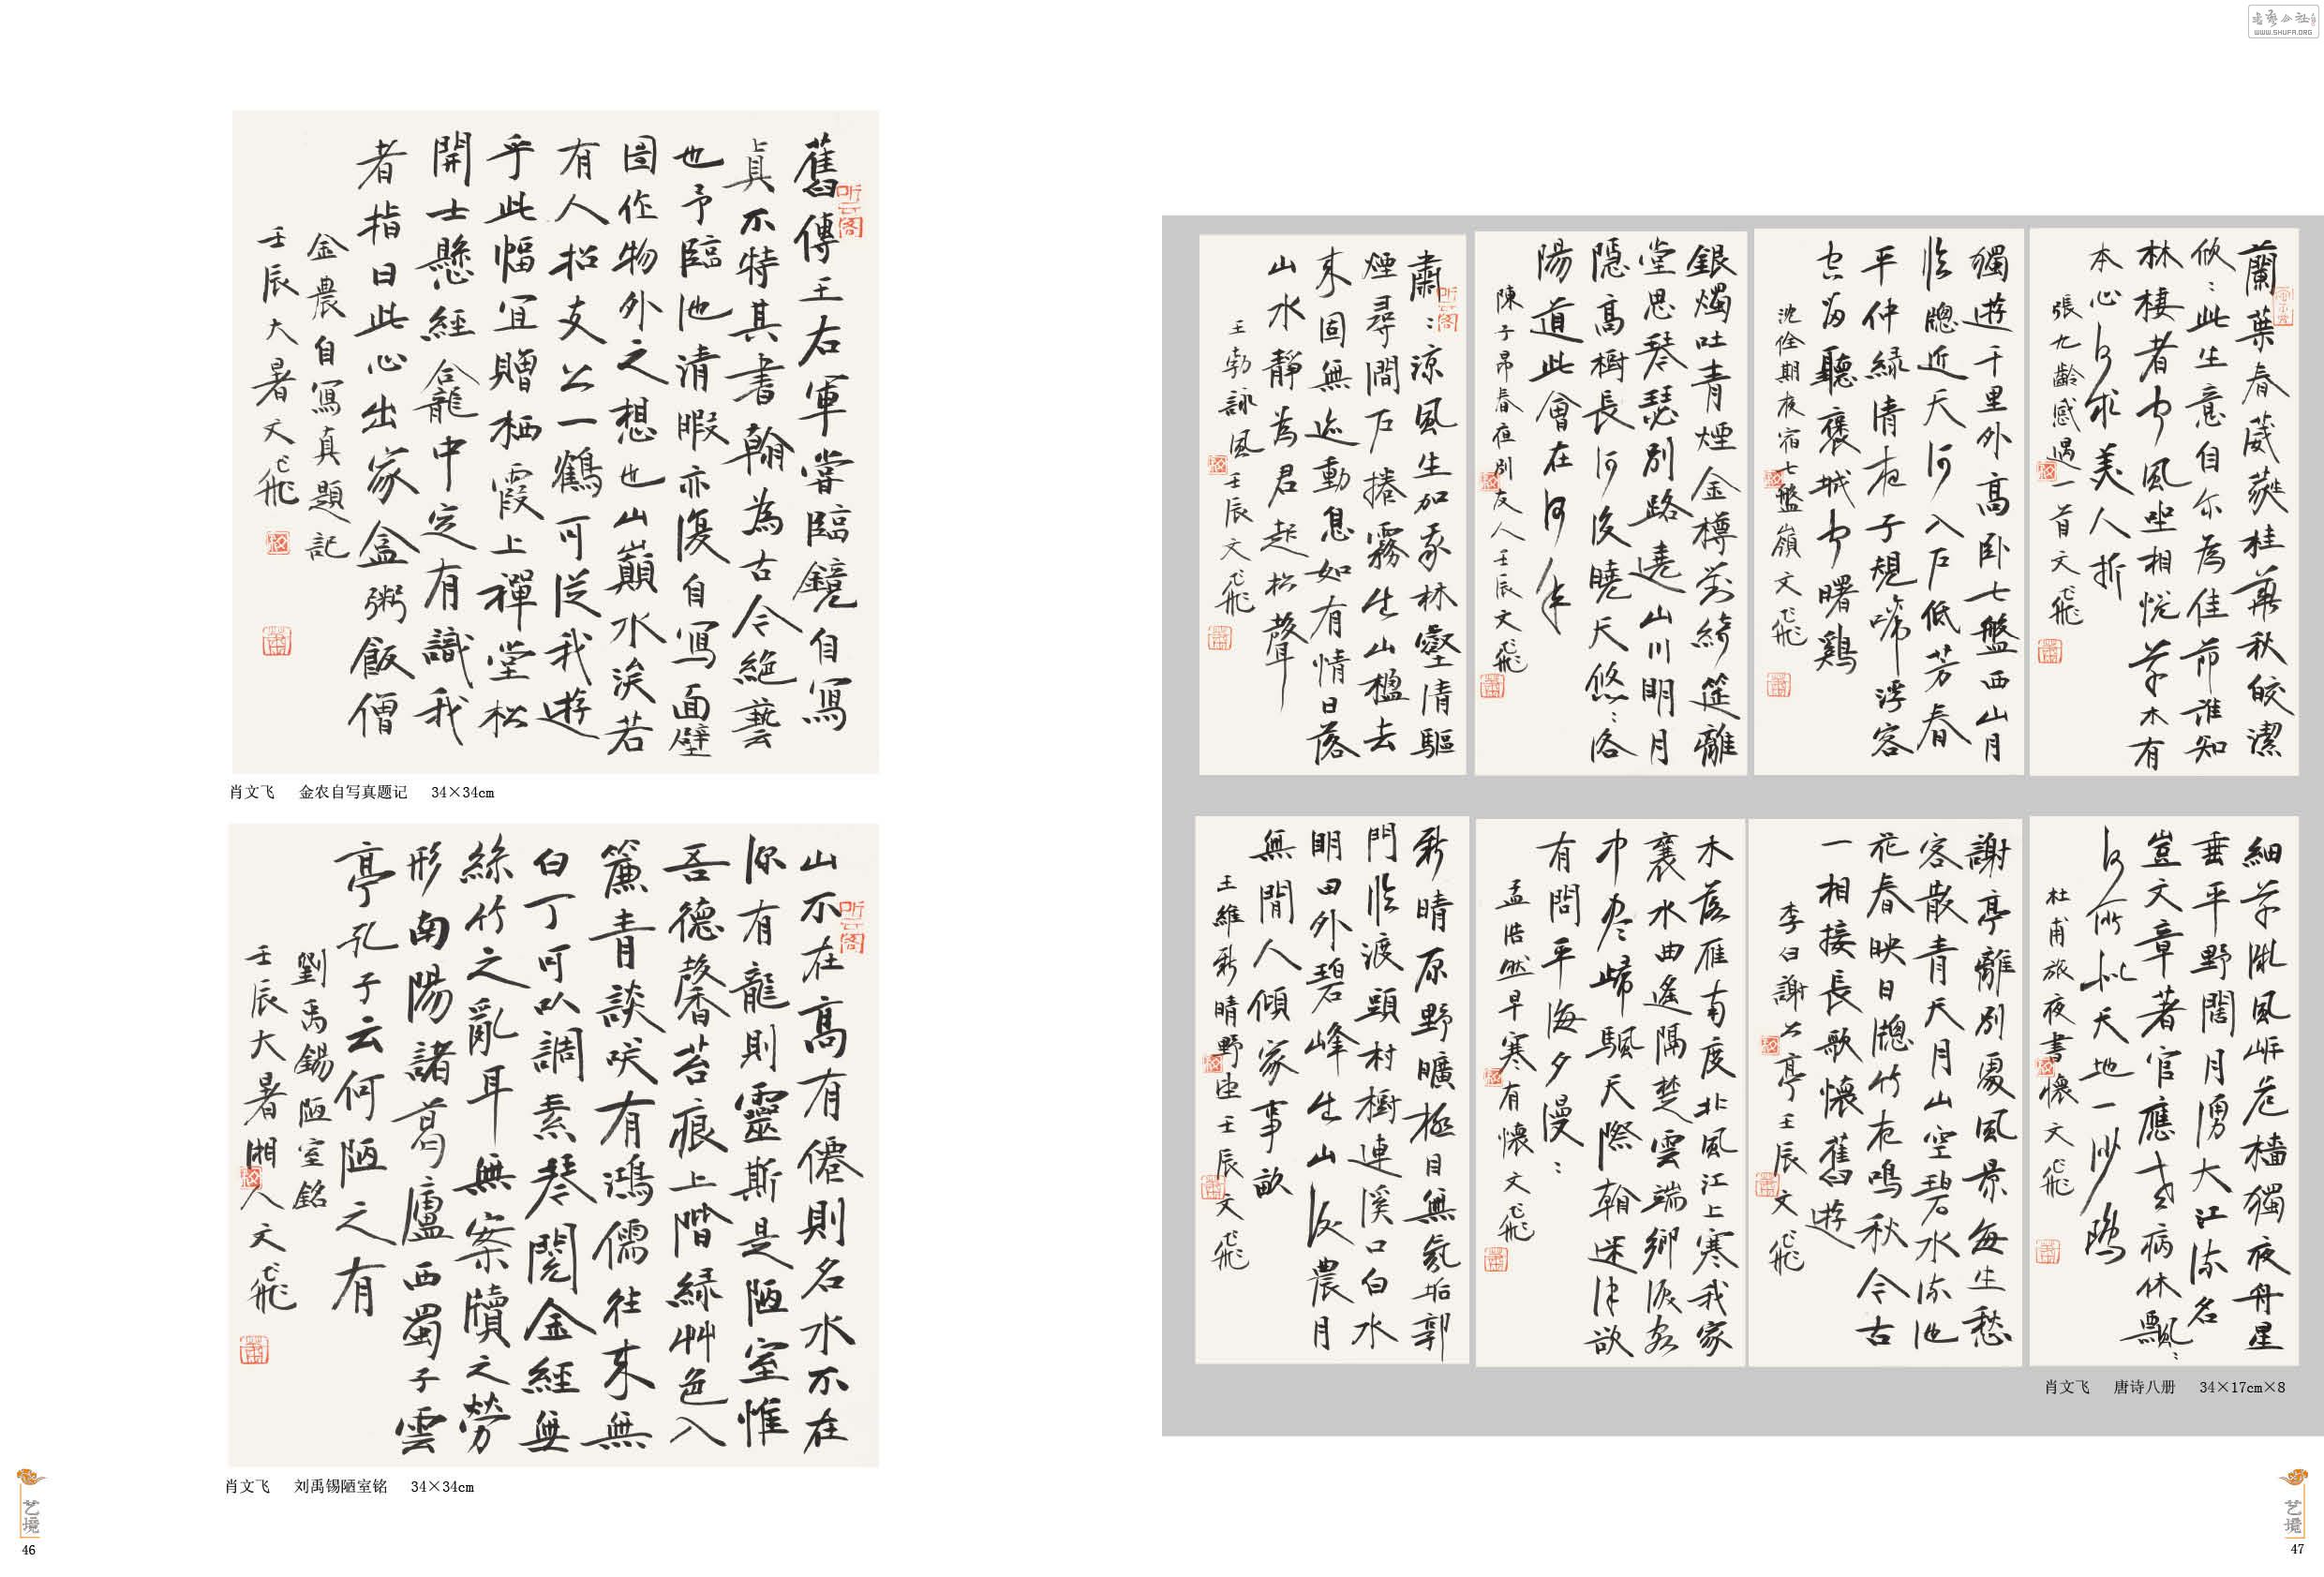 舊傳王右軍嘗臨鏡自寫
真不特其書翰為古今絕藝
也予臨池清暇亦復自寫面壁
圖作物外之想也山巔水涘若
有人招支公一鶴可從我遊
乎此幅宜贈栖霞上禪堂松
開士懸經龕中定有識我
者指曰此心出家盒粥飯僧
金農自寫真題記
壬辰大暑文飛
听云閣
肖文飞 金农自写真题记 34×34cm
山不在高有僊則名水不在
深有龍則靈斯是陋室惟
吾德馨苔痕上階緑艸色入
簾青談咲有鴻儒往來無
白丁可以調素琴閲金經無
絲竹之亂耳無案牘之勞
形南陽諸葛廬西蜀子雲
亭孔子云何陋之有
劉禹錫陋室銘
壬辰大暑湘人文飛
听云閣
肖文飞 刘禹锡陋室铭 34×34cm
艺境
46
WWW.SHUFA.ORG
蘭葉春葳蕤桂華秋皎潔
欣:此生意自尔為佳節誰知
林棲者聞風坐相悦草木有
本心何求美人折
張九齡感遇一首文飛
獨遊千里外高卧七盤西山月
臨牕近天河入户低芳春
平仲緑清夜子規啼浮客
空留聽褒城聞曙鷄
沈佺期夜宿七盤嶺文飛
銀燭吐青煙金樽對綺筵離
堂思琴瑟別路遶山川明月
隱高樹長河没曉天悠:洛
陽道此會在何年
陳子昂春夜別友人壬辰文飛
肅:涼風生加我林壑清驅
煙尋澗户捲霧出山楹去
來固無迹動息如有情日落
山水靜為君起松聲
王勃詠風壬辰文飛
听云閣
細草微風岸危檣獨夜舟星
垂平野闊月湧大江流名
豈文章著官應老病休飄:
何所似天地一沙鷗
杜甫旅夜書懷文飛
謝亭離別處風景每生愁
客散青天月山空碧水流池
花春映日牕竹夜鳴秋今古
一相接長歌懷舊遊
李白謝公亭壬辰文飛
木落雁南度北風江上寒我家
襄水曲遙隔楚雲端鄉淚客
中盡歸颿天際翰迷津欲
有問平海夕漫:
孟浩然早寒有懷文飛
新晴原野曠極目無氛垢郭
門臨渡頭村樹連溪口白水
明田外碧峰出山後農月
無閒人傾家事畝
王維新晴野望壬辰文飛
肖文飞 唐诗八册 34×17cm×8
艺境
47